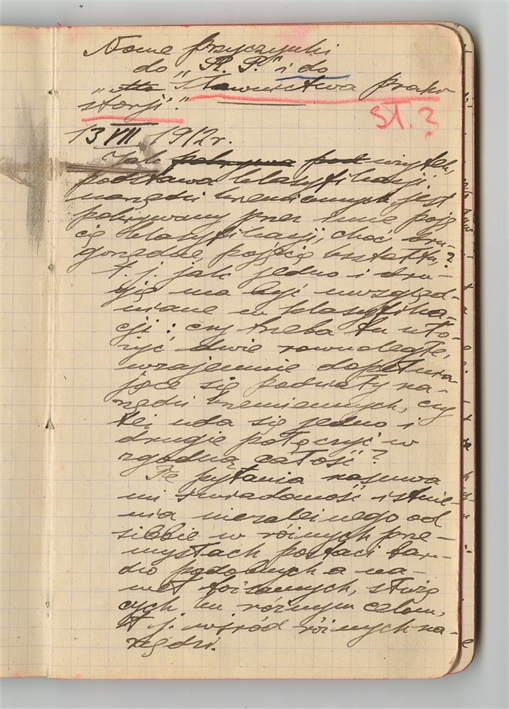 Nowe przyczynki
do "P. P." i do
"Ila Słownictwa praw
storji."
St. 2
13 VII 1912 r.
Jak wiytek,
podstawa klasyfikacji
narzędzi krzemiennych jest
pokrywany przez inne poję
cie klasyfikacji, choć dru-
gorzędne, pojęcie kształtu?
T. j. jak jedno i dru-
gie ma być uwzględ-
niane w klasyfika-
cji: czy trzeba tu uło-
żyć dwie równoległe,
wzajemnie dopełnia
jące się podziały na-
rzędzi krzemiennych, czy
też uda się jedno i
drugie połączyć w
zgodną całość?
Te pytania nasuwa
mi świadomość istnie
nia niezależnego od
siebie w różnych prze-
mysłach postaci bar-
dzo podobnych a na-
wet tożsamych, służą
cych im różnym celom,
t. j. wśród różnych na-
rzędzi.